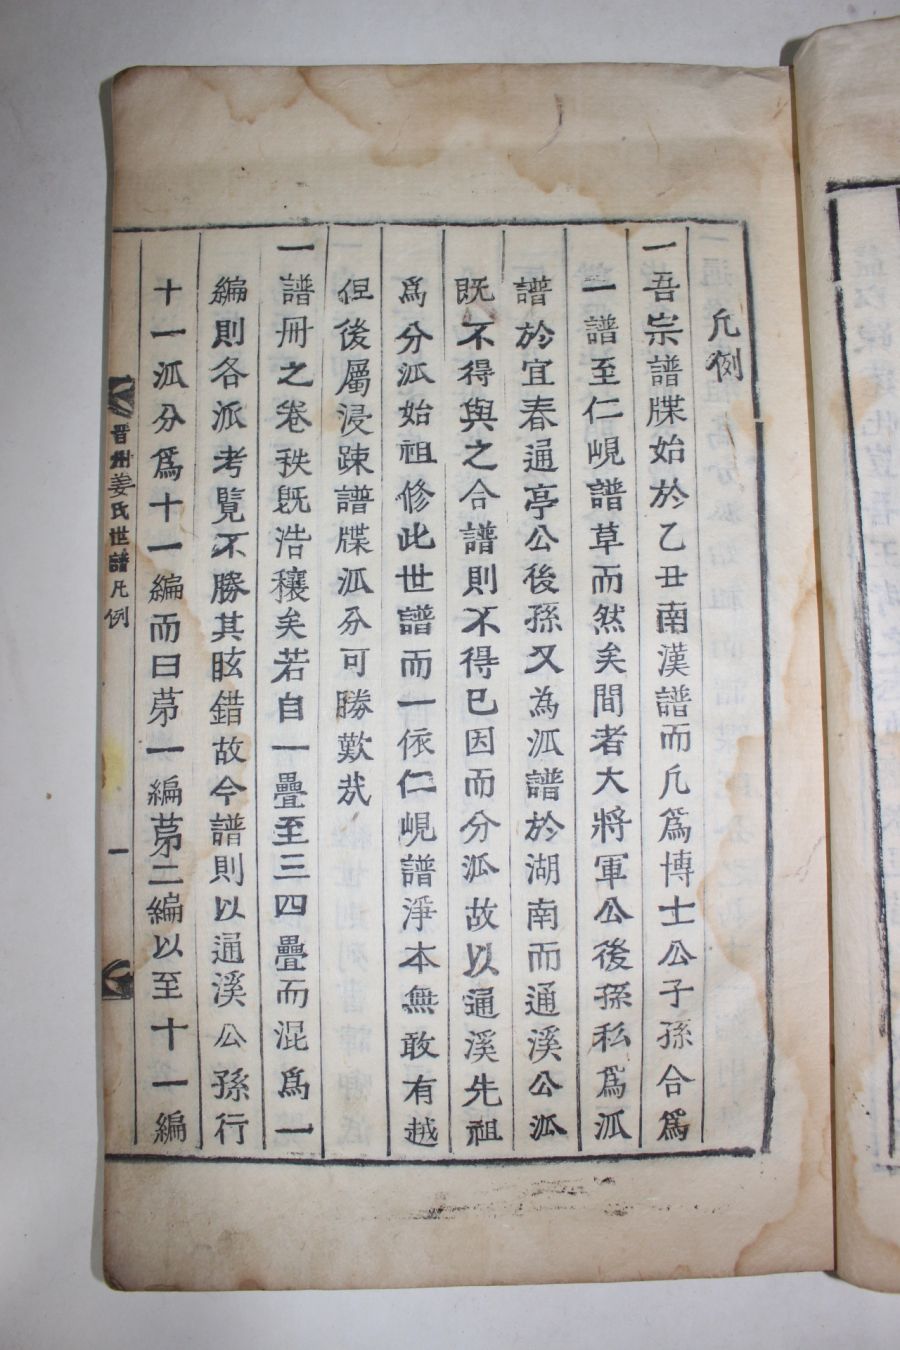 凡例
一吾宗譜牒始於乙丑南漢譜而凡爲博士公子孫合爲
一譜至仁峴譜草而然矣間者大將軍公後孫私爲派
譜於宜春通亭公後孫又為派譜於湖南而通溪公派
既不得與之合譜則不得已因而分派故以通溪先祖
爲分派始祖修此世譜而一依仁峴譜淨本無敢有越
但後屬浸踈譜牒派分可勝歎哉
一譜冊之卷秩旣浩穰矣若自一疊至三四疊而混爲一
編則各派考覧不勝其眩錯故今譜則以通溪公孫行
十一派分爲十一編而曰苐一編苐二編以至十一編
晋州姜氏世譜凡例 一